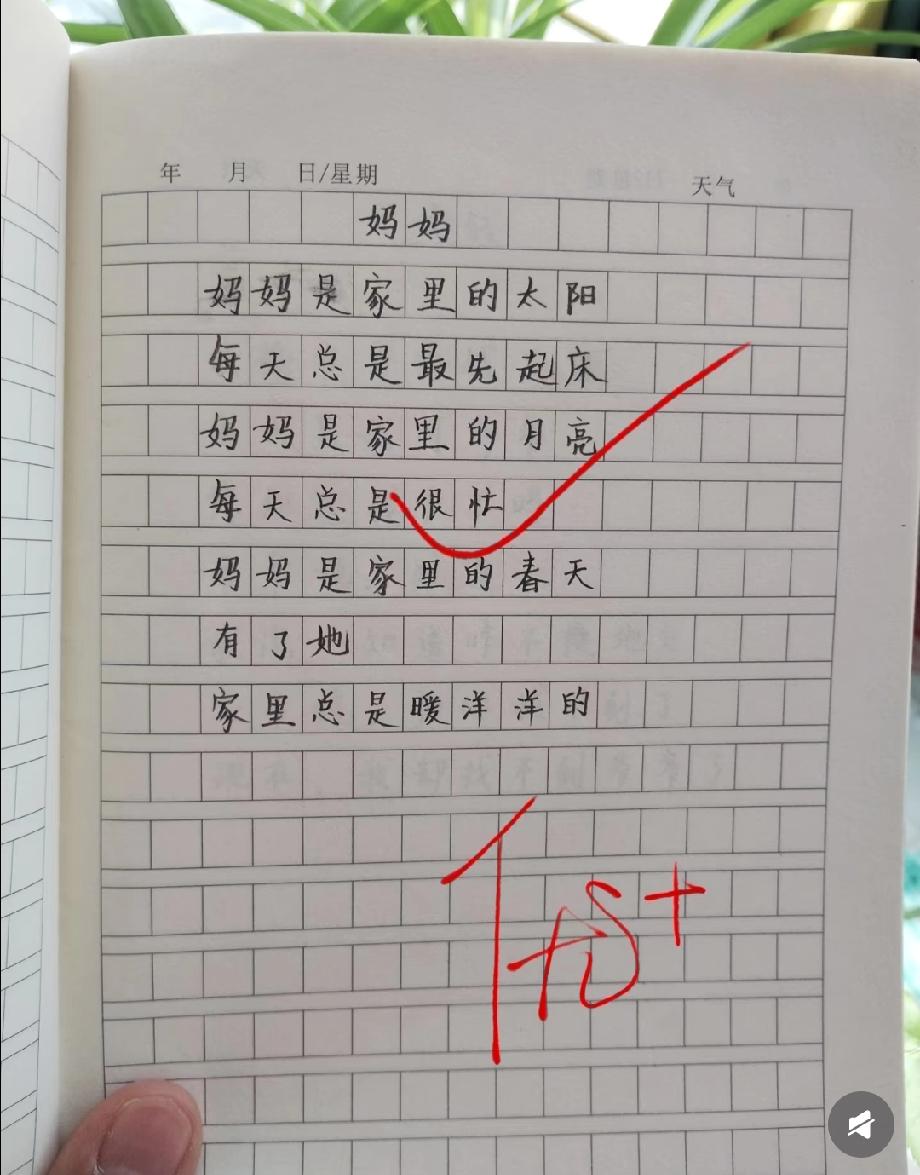 年 月 日/星期 天气
妈妈
妈妈是家里的太阳
每天总是最先起床
妈妈是家里的月亮
每天总是很忙
妈妈是家里的春天
有了她
家里总是暖洋洋的
优+